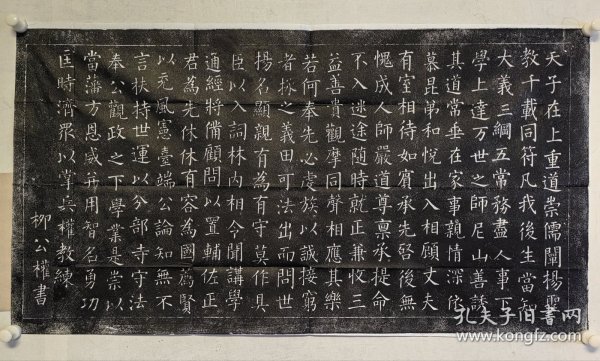 天子在上重道崇儒闡揚聖
教千載同符凡我後生當知
大義三綱五常務盡人事下
學上達万世之師尼山善誘
其道常垂在家事親情深依
慕昆弟和悅出入相顧丈夫
有室相待如賓承先啓後無
愧成人師嚴道尊稟承提命
不入迷途随時就正兼收三
益善貴觀摩同聲相應其樂
若何奉先必虔族以誠接窮
者務之義田可法出而問世
揚名顯親有為有守莫作具
臣以入詞林内相令聞講學
通經將備顧問以置輔佐正
君為先休休有容為國薦賢
以充風憲臺端公論知無不
言扶持世運以分部寺守法
奉公觀政之下學業是崇以
當藩方恩威并用智名勇功
匡時濟眾以掌兵權教練
柳公權書
孔夫子旧书网
www.kongfz.com